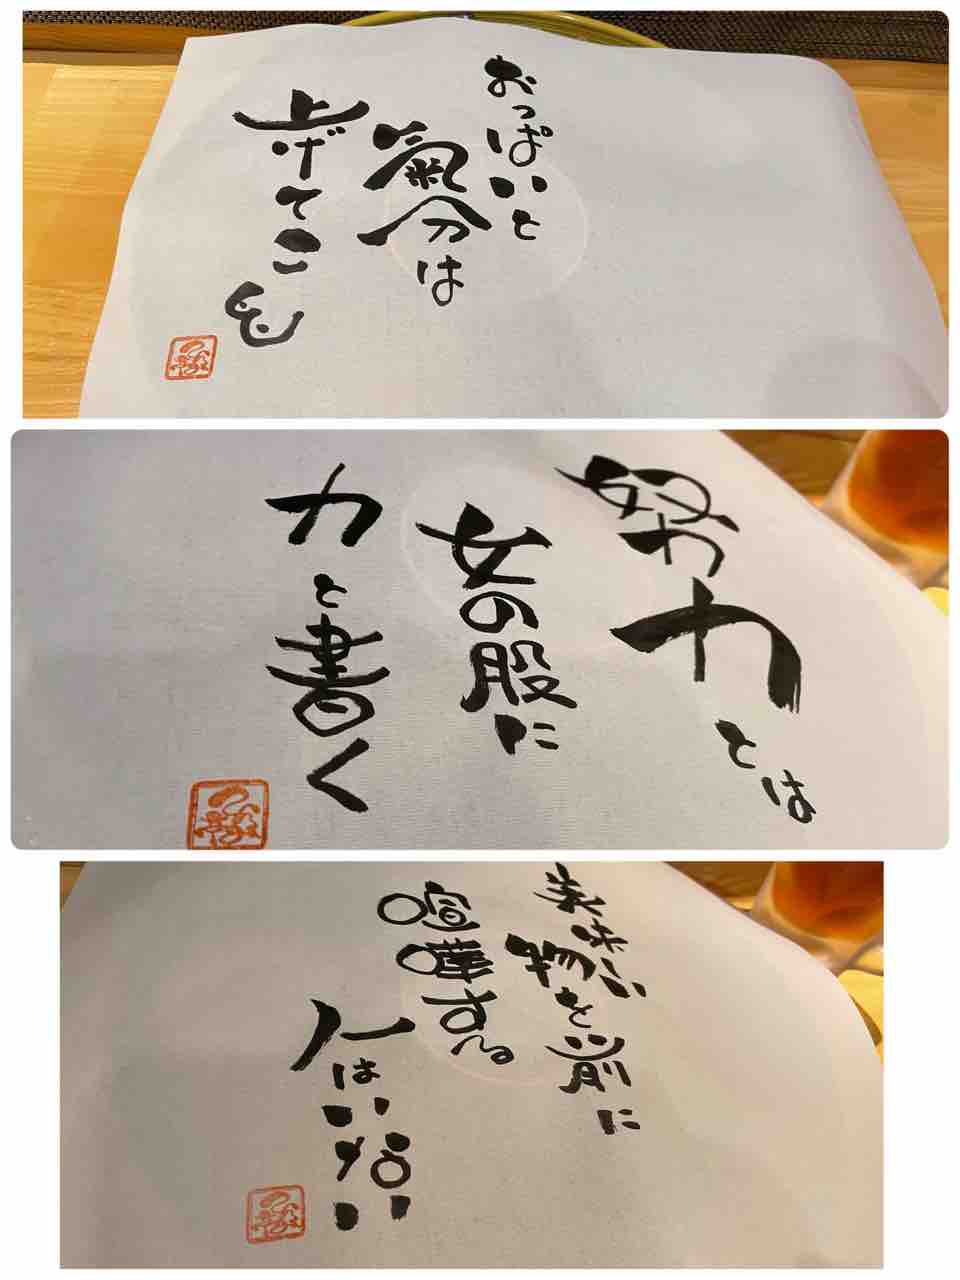 おっぱいと
氣分は
上げてこ
努力とは
女の股に
力と書く
美味い物を前に
喧嘩する
人はいない